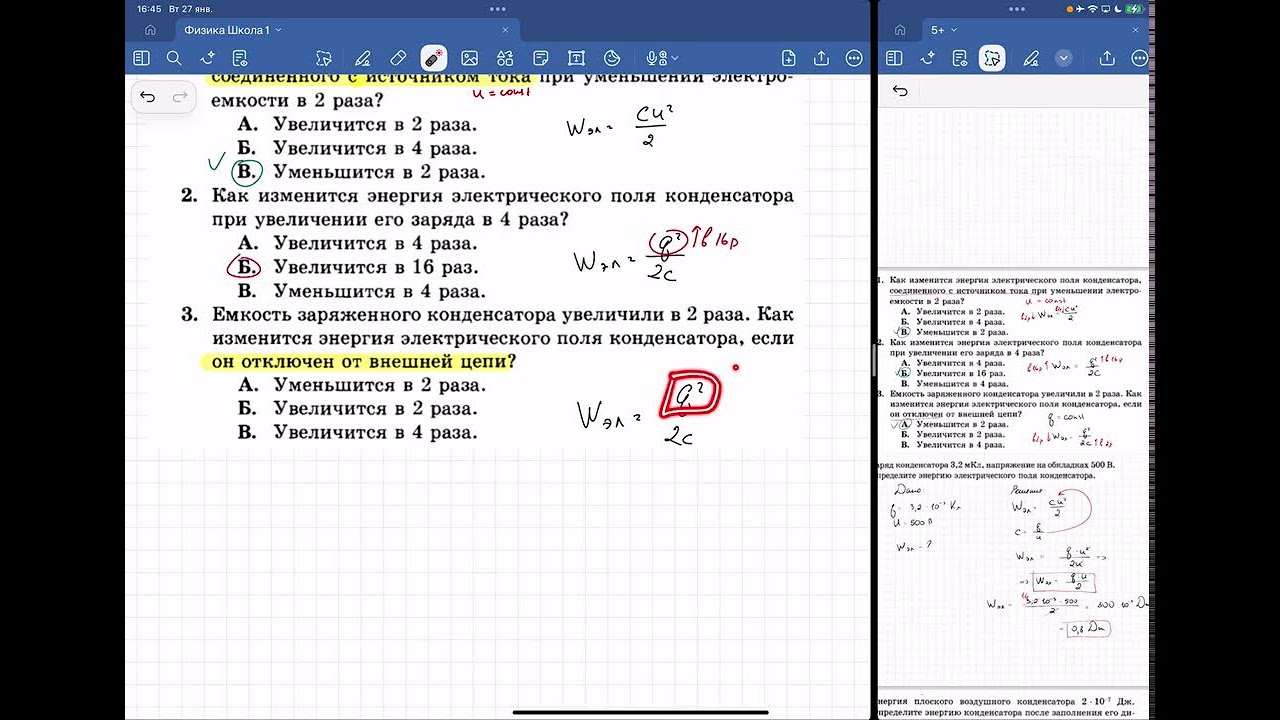 16:45 Вт 27 янв.
Физика Школа 1
соединенного с источником тока при уменьшении электро-
емкости в 2 раза?
u = const
А. Увеличится в 2 раза.
Б. Увеличится в 4 раза.
В. Уменьшится в 2 раза.
Wэл = Cu²/2
2. Как изменится энергия электрического поля конденсатора
при увеличении его заряда в 4 раза?
А. Увеличится в 4 раза.
Б. Увеличится в 16 раз.
В. Уменьшится в 4 раза.
Wэл = q²/2c ↑в 16р
3. Емкость заряженного конденсатора увеличили в 2 раза. Как
изменится энергия электрического поля конденсатора, если
он отключен от внешней цепи?
А. Уменьшится в 2 раза.
Б. Увеличится в 2 раза.
В. Увеличится в 4 раза.
Wэл = q²/2c
5+
1. Как изменится энергия электрического поля конденсатора,
соединенного с источником тока при уменьшении электро-
емкости в 2 раза?
u = const
А. Увеличится в 2 раза.
Б. Увеличится в 4 раза.
В. Уменьшится в 2 раза.
2. Как изменится энергия электрического поля конденсатора
при увеличении его заряда в 4 раза?
А. Увеличится в 4 раза.
Б. Увеличится в 16 раз.
В. Уменьшится в 4 раза.
Wэл = q²/2C
3. Емкость заряженного конденсатора увеличили в 2 раза. Как
изменится энергия электрического поля конденсатора, если
он отключен от внешней цепи?
q = const
А. Уменьшится в 2 раза.
Б. Увеличится в 2 раза.
В. Увеличится в 4 раза.
аряд конденсатора 3,2 мКл, напряжение на обкладках 500 В.
пределите энергию электрического поля конденсатора.
Дано
Решение
500 В
Wэл = Cu²/2
Wэл - ?
нергия плоского воздушного конденсатора 2·10⁻⁷ Дж.
пределите энергию конденсатора после заполнения его ди-